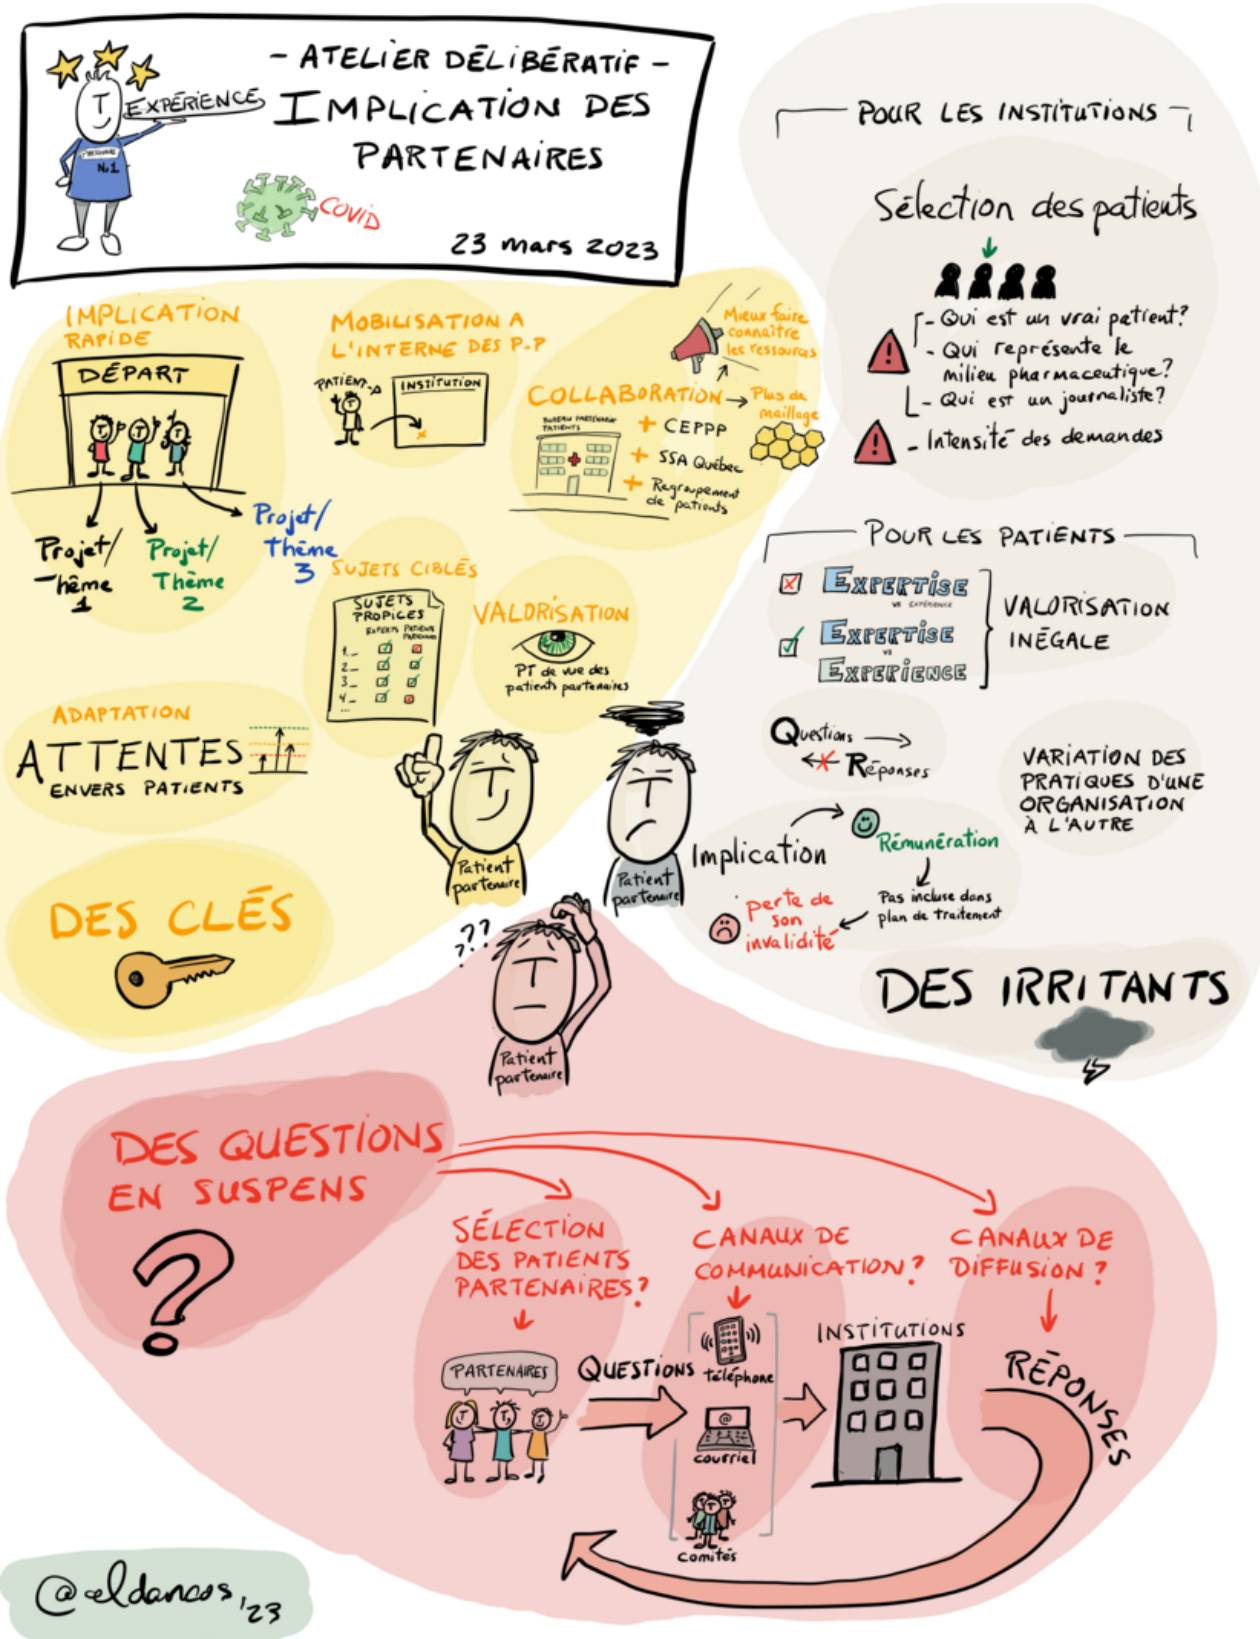 - ATELIER DÉLIBÉRATIF -
EXPÉRIENCE
IMPLICATION DES
PARTENAIRES
N.1
COVID
23 mars 2023
IMPLICATION
RAPIDE
DÉPART
Projet/
Thème
1
Projet/
Thème
2
Projet/
Thème
3
MOBILISATION A
L'INTERNE DES P.P
PATIENT
INSTITUTION
Mieux faire
connaître
les ressources
COLLABORATION
Plus de
maillage
BUREAU PARTENARIAT
PATIENTS
+ CEPPP
+ SSA Québec
+ Regroupement
de patients
SUJETS CIBLÉS
SUJETS
PROPICES
EXPERTS PATIENTS
PARTENAIRES
1._
2._
3._
4._
...
VALORISATION
PT de vue des
patients partenaires
ADAPTATION
ATTENTES
ENVERS PATIENTS
DES CLÉS
Patient
partenaire
Patient
partenaire
???
Patient
partenaire
POUR LES INSTITUTIONS
Sélection des patients
- Qui est un vrai patient?
- Qui représente le
milieu pharmaceutique?
- Qui est un journaliste?
- Intensité des demandes
POUR LES PATIENTS
EXPERTISE
VS EXPÉRIENCE
EXPERTISE
VS
EXPERIENCE
VALORISATION
INÉGALE
Questions
Réponses
VARIATION DES
PRATIQUES D'UNE
ORGANISATION
À L'AUTRE
Implication
Rémunération
Pas incluse dans
plan de traitement
perte de
son
invalidité
DES IRRITANTS
DES QUESTIONS
EN SUSPENS
?
SÉLECTION
DES PATIENTS
PARTENAIRES?
CANAUX DE
COMMUNICATION?
CANAUX DE
DIFFUSION?
PARTENAIRES
QUESTIONS
téléphone
@
courriel
comités
INSTITUTIONS
RÉPONSES
@eldancos,'23